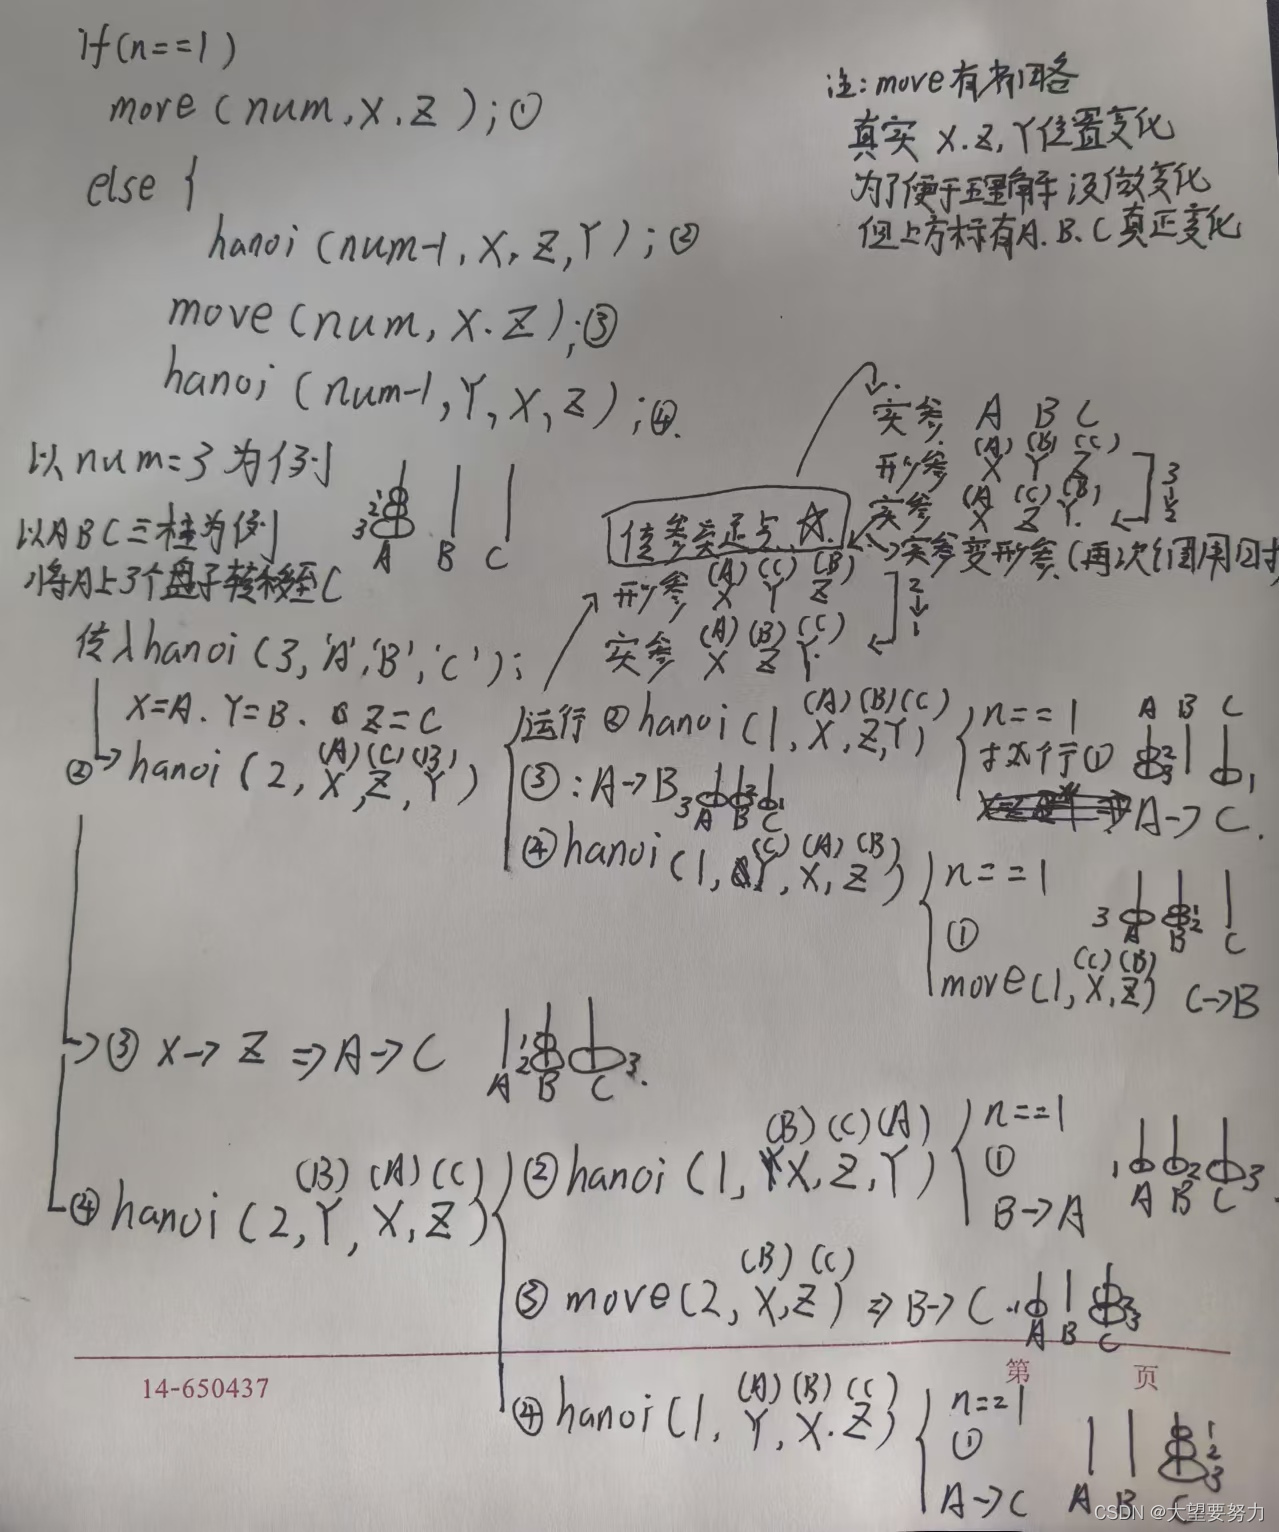 if(n==1)
move(num,X.Z);①
else {
hanoi(num-1,X,Z,Y);②
move(num,X.Z);③
hanoi(num-1,Y,X,Z);④.
注:move有所省略
真实 X.Z,Y位置变化
为了便于理解 没做变化
但上方标有A.B.C真正变化
以num=3为例
以ABC三柱为例
将A上3个盘子转移至C
1
2
3
A B C
传入hanoi(3,'A','B','C');
X=A. Y=B. Z=C
实参 A B C
(A) (B) (C)
形参 X Y Z
(A) (C) (B)
实参 X Z Y.
3
↓
2
传参关足点 ☆.
实参变形参(再次
(A) (C) (B)
形参 X Y Z
(A) (B) (C)
实参 X Z Y.
2
↓
1
(A)(C)(B)
② hanoi(2,X,Z,Y)
(A)(B)(C)
运行②hanoi(1,X,Z,Y)
n==1
执行①
A→C.
A B C
2
3
1
③:A→B
3 2 1
A B C
(C)(A)(B)
④hanoi(1,Y,X,Z)
n==1
①
(C)(B)
move(1,X,Z) C→B
3 1
2
A B C
③ X→Z ⇒A→C
1
2
3.
A B C
(B) (A) (C)
④hanoi(2,Y,X,Z)
(B)(C)(A)
②hanoi(1,X,Z,Y)
n==1
①
B→A
1 2 3
A B C
(B) (C)
③ move(2,X,Z)⇒B→C
1 2
3
A B C
(A)(B)(C)
④hanoi(1,Y,X.Z)
n==1
①
A→C
1
2
3
A B C
14-650437
第 页
CSDN @大望要努力